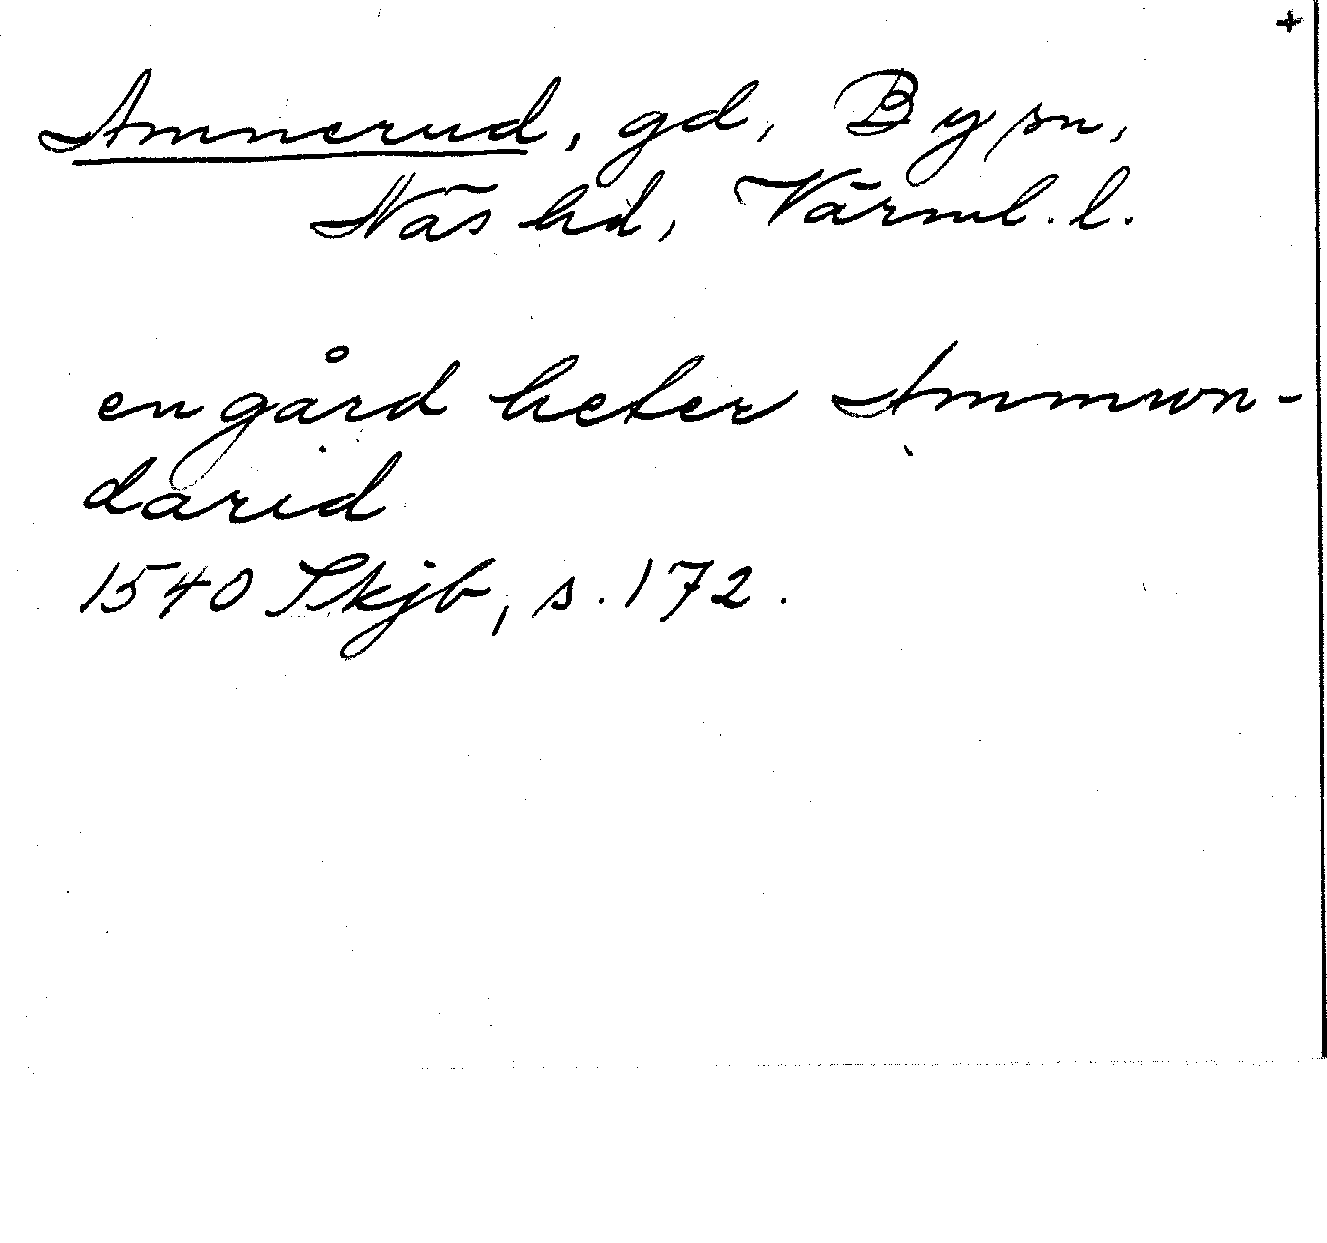 +
Amnerud, gd, By sn,
Näs hd, Värml. l.
en gård heter Ammwn-
darid
1540 Skjb, s. 172.